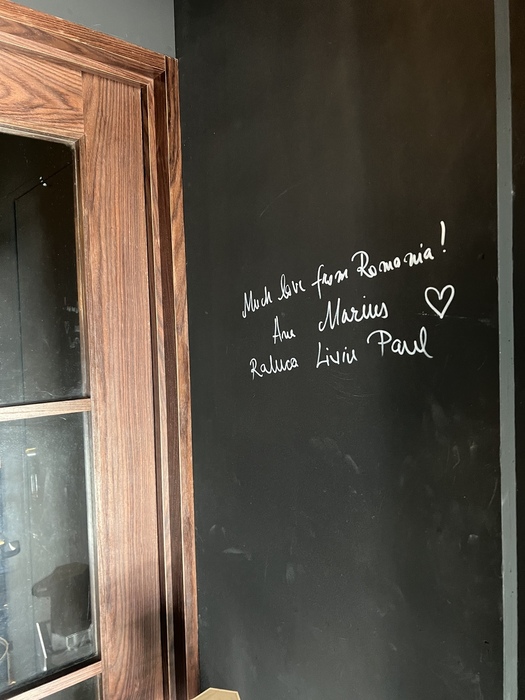 Much love from Romania!
Ana Marius
Raluca Liviu Paul